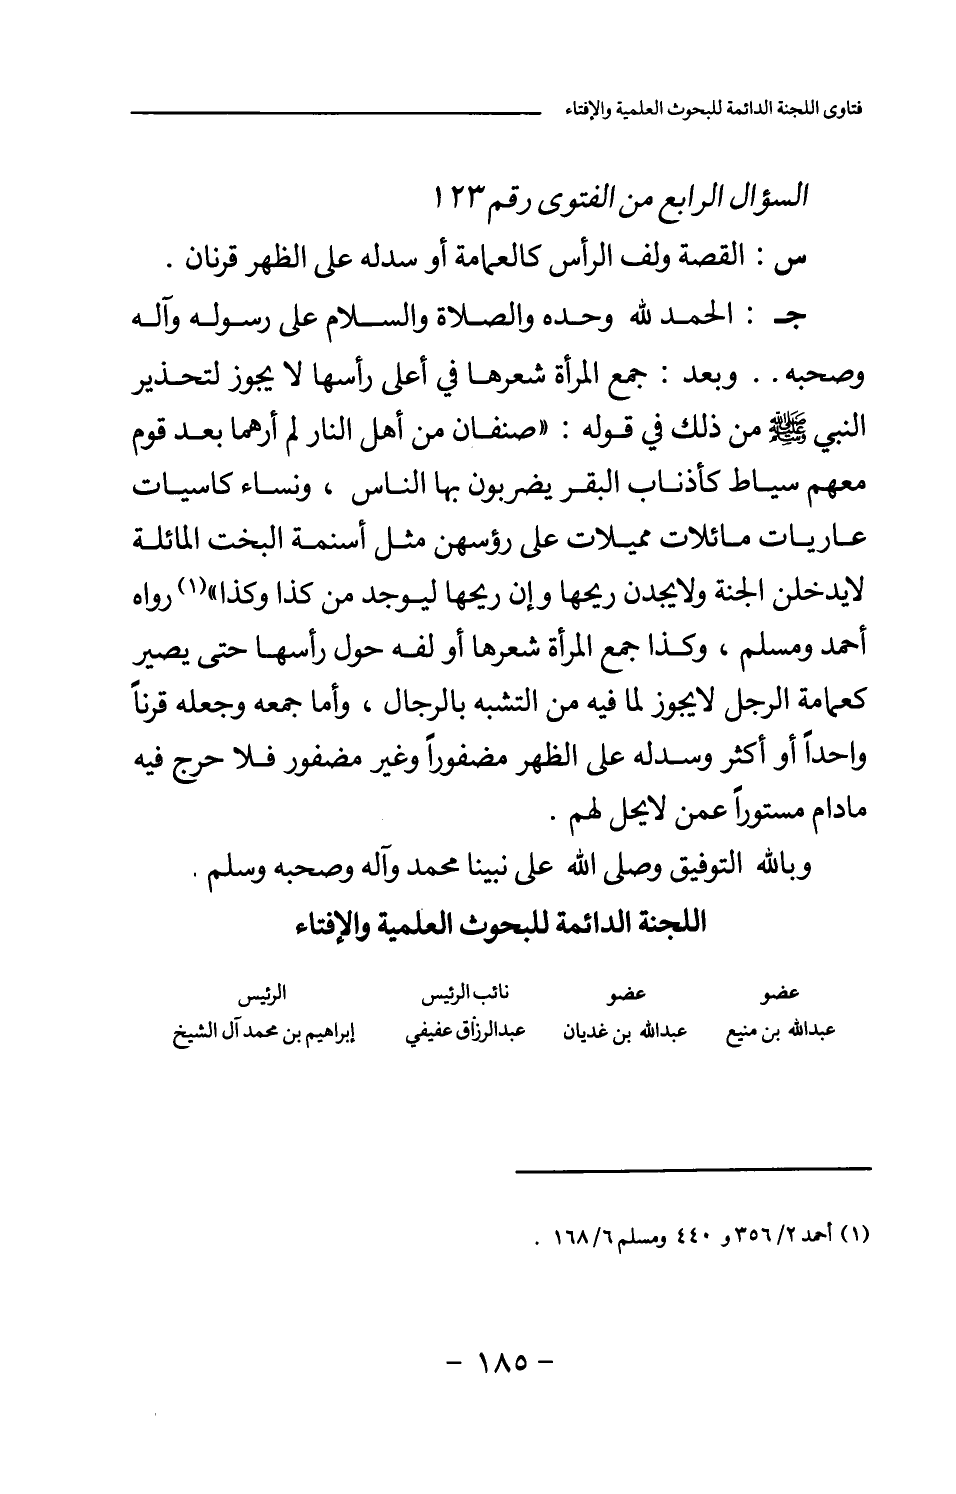 فتاوى اللجنة الدائمة للبحوث العلمية والإفتاء
السؤال الرابع من الفتوى رقم ١٢٣
س : القصة ولف الرأس كالعمامة أو سدله على الظهر قرنان .
جـ : الحمد لله وحده والصلاة والسلام على رسوله وآله
وصحبه . . وبعد : جمع المرأة شعرها في أعلى رأسها لا يجوز لتحذير
النبي ﷺ من ذلك في قوله : «صنفان من أهل النار لم أرهما بعد قوم
معهم سياط كأذناب البقر يضربون بها الناس ، ونساء كاسيات
عاريات مائلات مميلات على رؤسهن مثل أسنمة البخت المائلة
لايدخلن الجنة ولايجدن ريحها وإن ريحها ليوجد من كذا وكذا»(١) رواه
أحمد ومسلم ، وكذا جمع المرأة شعرها أو لفه حول رأسها حتى يصير
كعمامة الرجل لايجوز لما فيه من التشبه بالرجال ، وأما جمعه وجعله قرناً
واحداً أو أكثر وسدله على الظهر مضفوراً وغير مضفور فلا حرج فيه
مادام مستوراً عمن لايحل لهم .
وبالله التوفيق وصلى الله على نبينا محمد وآله وصحبه وسلم .
اللجنة الدائمة للبحوث العلمية والإفتاء
عضو عضو نائب الرئيس الرئيس
عبدالله بن منيع عبدالله بن غديان عبدالرزاق عفيفي إبراهيم بن محمد آل الشيخ
(١) أحمد ٢/ ٣٥٦ و ٤٤٠ ومسلم ٦/ ١٦٨ .
- ١٨٥ -